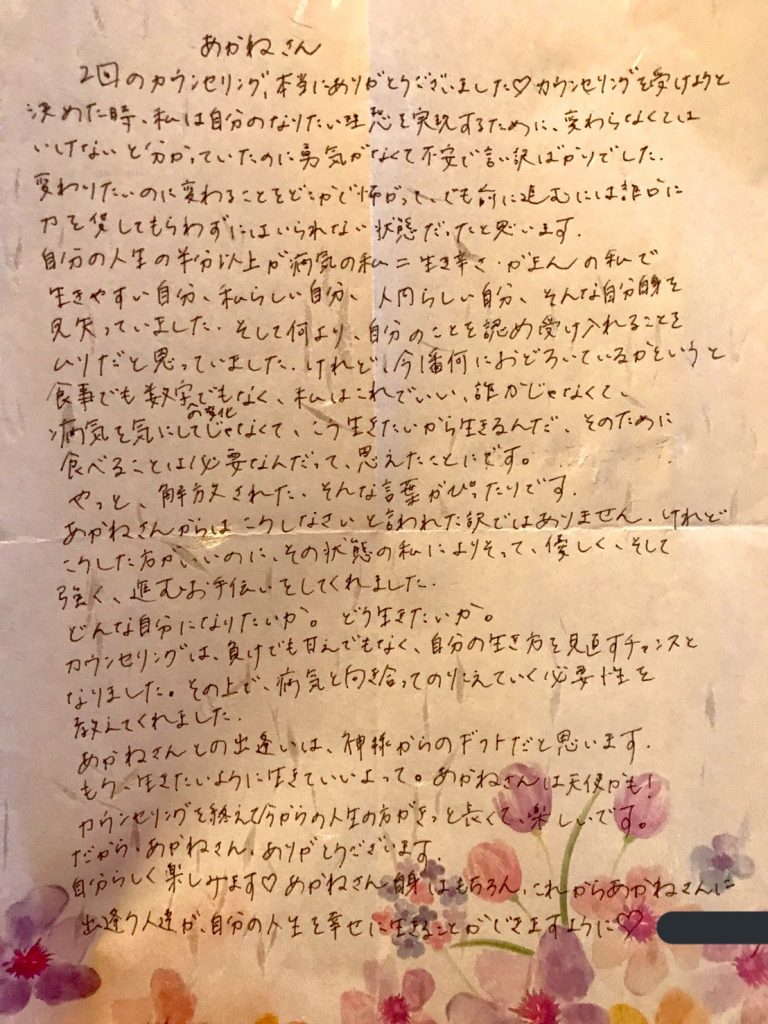 あかねさん
2回のカウンセリング、本当にありがとうございました♡カウンセリングを受けようと
決めた時、私は自分のなりたい理想を実現するために、変わらなくては
いけないと分かっていたのに勇気がなくて不安で言い訳ばかりでした.
変わりたいのに変わることをどこかで怖がって、でも前に進むには誰かに
力を貸してもらわずにはいられない状態だったと思います.
自分の人生の半分以上が病気の私=生き辛さ・がまんの私で
生きやすい自分、私らしい自分、人間らしい自分、そんな自分自身を
見失っていました.そして何より、自分のことを認め受け入れることを
ムリだと思っていました.けれど、今1番何におどろいているかというと
食事でも数字の変化でもなく、私はこれでいい、誰かじゃなくて、
病気を気にしてじゃなくて、こう生きたいから生きるんだ、そのために
食べることは必要なんだって、思えたことにです。
やっと、解放された、そんな言葉がぴったりです.
あかねさんからはこうしなさいと言われた訳ではありません.けれど
こうした方がいいのに、その状態の私によりそって、優しく、そして
強く、進むお手伝いをしてくれました.
どんな自分になりたいか。どう生きたいか。
カウンセリングは、負けでも甘えでもなく、自分の生き方を見直すチャンスと
なりました。その上で、病気と向き合ってのりこえていく必要性を
教えてくれました.
あかねさんとの出逢いは、神様からのギフトだと思います.
もう、生きたいように生きていいよって。あかねさんは天使かも!
カウンセリングを終えて今からの人生の方がきっと長くて、楽しいです。
だから、あかねさん、ありがとうございます.
自分らしく楽しみます♡あかねさん自身はもちろん、これからあかねさんに
出逢う人達が、自分の人生を幸せに生きることができますように♡